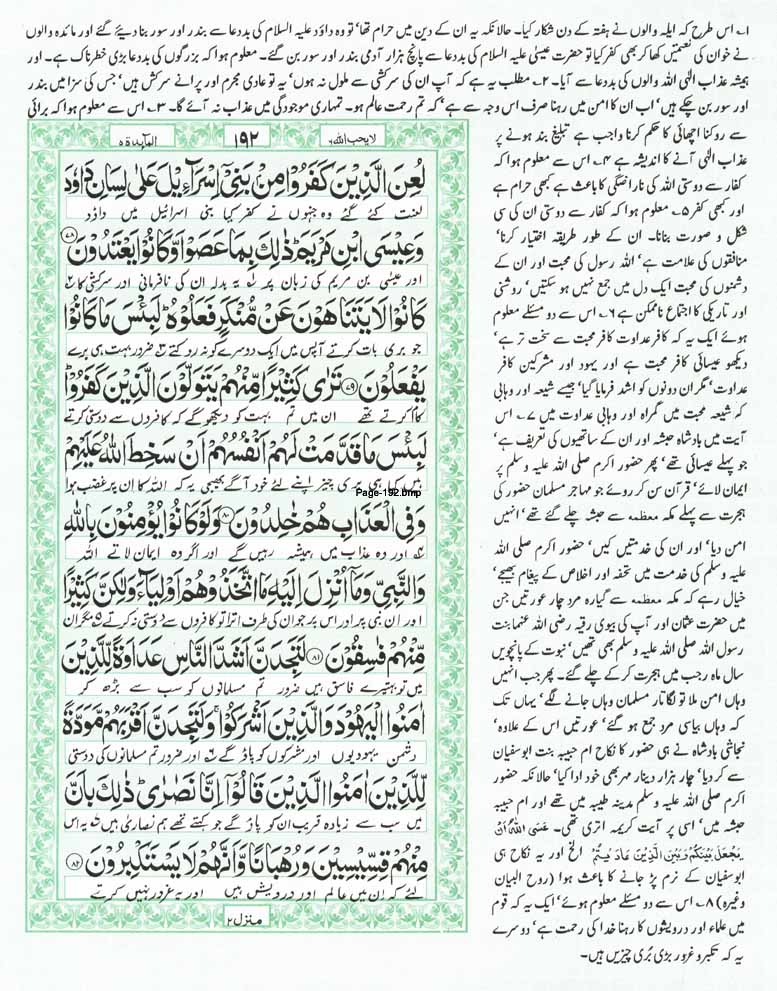 ۱۔ اس طرح کہ ایلہ والوں نے ہفتہ کے دن شکار کیا۔ حالانکہ یہ ان کے دین میں حرام تھا' تو وہ داؤد علیہ السلام کی بددعا سے بندر اور سور بنا دیئے گئے اور مائدہ والوں
نے خوان کی نعمتیں کھا کر بھی کفر کیا تو حضرت عیسیٰ علیہ السلام کی بددعا سے پانچ ہزار آدمی بندر اور سور بن گئے۔ معلوم ہوا کہ بزرگوں کی بددعا بڑی خطرناک ہے۔ اور
ہمیشہ عذاب الٰہی اللہ والوں کی بددعا سے آیا۔ ۲۔ مطلب یہ ہے کہ آپ ان کی سرکشی سے ملول نہ ہوں' یہ تو عادی مجرم اور پرانے سرکش ہیں' جس کی سزا میں بندر
اور سور بن چکے ہیں' اب ان کا امن میں رہنا صرف اس وجہ سے ہے' کہ تم رحمت عالم ہو۔ تمہاری موجودگی میں عذاب نہ آئے گا۔ ۳۔ اس سے معلوم ہوا کہ برائی
سے روکنا اچھائی کا حکم کرنا واجب ہے تبلیغ بند ہونے پر
عذاب الٰہی آنے کا اندیشہ ہے ۴۔ اس سے معلوم ہوا کہ
کفار سے دوستی اللہ کی ناراضگی کا باعث ہے کبھی حرام ہے
اور کبھی کفر ۵۔ معلوم ہوا کہ کفار سے دوستی ان کی سی
شکل و صورت بنانا۔ ان کے طور طریقہ اختیار کرنا'
منافقوں کی علامت ہے' اللہ رسول کی محبت اور ان کے
دشمنوں کی محبت ایک دل میں جمع نہیں ہو سکتیں' روشنی
اور تاریکی کا اجتماع ناممکن ہے ۶۔ اس سے دو مسئلے معلوم
ہوئے ایک یہ کہ کافر عداوت کافر محبت سے سخت تر ہے'
دیکھو عیسائی کافر محبت ہے اور یہود اور مشرکین کافر
عداوت' مگر ان دونوں کو اشد فرمایا گیا' جیسے شیعہ اور وہابی
کہ شیعہ محبت میں گمراہ اور وہابی عداوت میں ۷۔ اس
آیت میں بادشاہ حبشہ اور ان کے ساتھیوں کی تعریف ہے'
جو پہلے عیسائی تھے' پھر حضور اکرم صلی اللہ علیہ وسلم پر
ایمان لائے' قرآن سن کر روئے جو مہاجر مسلمان حضور کی
ہجرت سے پہلے مکہ معظمہ سے حبشہ چلے گئے تھے' انہیں
امن دیا' اور ان کی خدمتیں کیں' حضور اکرم صلی اللہ
علیہ وسلم کی خدمت میں تحفہ اور اخلاص کے پیغام بھیجے'
خیال رہے کہ مکہ معظمہ سے گیارہ مرد چار عورتیں جن
میں حضرت عثمان اور آپ کی بیوی رقیہ رضی اللہ عنہا بنت
رسول اللہ صلی اللہ علیہ وسلم بھی تھیں' نبوت کے پانچویں
سال ماہ رجب میں ہجرت کر کے چلے گئے۔ پھر جب انہیں
وہاں امن ملا تو لگاتار مسلمان وہاں جانے لگے' یہاں تک
کہ وہاں بیاسی مرد جمع ہو گئے' عورتیں اس کے علاوہ'
نجاشی بادشاہ نے ہی حضور کا نکاح ام حبیبہ بنت ابوسفیان
سے کر دیا' چار ہزار دینار مہر بھی خود ادا کیا' حالانکہ حضور
اکرم صلی اللہ علیہ وسلم مدینہ طیبہ میں تھے اور ام حبیبہ
حبشہ میں' اسی پر آیت کریمہ اتری تھی۔ عَسَى اللّٰهُ اَنْ
يَجْعَلَ بَيْنَكُمْ وَبَيْنَ الَّذِيْنَ عَادَيْتُمْ الخ اور یہ نکاح ہی
ابوسفیان کے نرم پڑ جانے کا باعث ہوا (روح البیان
وغیرہ) ۸۔ اس سے دو مسئلے معلوم ہوئے' ایک یہ کہ قوم
میں علماء اور درویشوں کا رہنا خدا کی رحمت ہے' دوسرے
یہ کہ تکبر و غرور بڑی بُری چیزیں ہیں۔
لا یحب اللہ ۶
۱۹۲
المآئدة ۵
لُعِنَ الَّذِيْنَ كَفَرُوْا مِنْۢ بَنِيْٓ اِسْرَآءِيْلَ عَلٰى لِسَانِ دَاوٗدَ
لعنت کئے گئے وہ جنہوں نے کفر کیا بنی اسرائیل میں داؤد
وَعِيْسَى ابْنِ مَرْيَمَ ؕ ذٰلِكَ بِمَا عَصَوْا وَّكَانُوْا يَعْتَدُوْنَ ۷۸
اور عیسٰی بن مریم کی زبان پر ۱ یہ بدلہ ان کی نافرمانی اور سرکشی کا ۲
كَانُوْا لَا يَتَنَاهَوْنَ عَنْ مُّنْكَرٍ فَعَلُوْهُ ؕ لَبِئْسَ مَا كَانُوْا
جو بری بات کرتے آپس میں ایک دوسرے کو نہ روکتے ۳ ضرور بہت ہی برے
يَفْعَلُوْنَ ۷۹ تَرٰى كَثِيْرًا مِّنْهُمْ يَتَوَلَّوْنَ الَّذِيْنَ كَفَرُوْا ؕ
کام کرتے تھے ان میں تم بہت کو دیکھو گے کہ کافروں سے دوستی کرتے
لَبِئْسَ مَا قَدَّمَتْ لَهُمْ اَنْفُسُهُمْ اَنْ سَخِطَ اللّٰهُ عَلَيْهِمْ
ہیں کیا ہی بری چیز اپنے لئے خود آگے بھیجی یہ کہ اللہ کا ان پر غضب ہوا
Page-192.bmp
وَفِي الْعَذَابِ هُمْ خٰلِدُوْنَ ۸۰ وَلَوْ كَانُوْا يُؤْمِنُوْنَ بِاللّٰهِ
۴ اور وہ عذاب میں ہمیشہ رہیں گے اور اگر وہ ایمان لاتے اللہ
وَالنَّبِيِّ وَمَآ اُنْزِلَ اِلَيْهِ مَا اتَّخَذُوْهُمْ اَوْلِيَآءَ وَلٰكِنَّ كَثِيْرًا
اور ان نبی پر اور اس پر جو ان کی طرف اترا تو کافروں سے دوستی نہ کرتے ۵ مگر ان
مِّنْهُمْ فٰسِقُوْنَ ۸۱ لَتَجِدَنَّ اَشَدَّ النَّاسِ عَدَاوَةً لِّلَّذِيْنَ
میں تو بہتیرے فاسق ہیں ضرور تم مسلمانوں کو سب سے بڑھ کر
اٰمَنُوا الْيَهُوْدَ وَالَّذِيْنَ اَشْرَكُوْا ۚ وَلَتَجِدَنَّ اَقْرَبَهُمْ مَّوَدَّةً
دشمن یہودیوں اور مشرکوں کو پاؤ گے ۶ اور ضرور تم مسلمانوں کی دوستی
لِّلَّذِيْنَ اٰمَنُوا الَّذِيْنَ قَالُوْٓا اِنَّا نَصٰرٰى ؕ ذٰلِكَ بِاَنَّ
میں سب سے زیادہ قریب ان کو پاؤ گے جو کہتے تھے ہم نصاریٰ ہیں ۷ یہ اس
مِنْهُمْ قِسِّيْسِيْنَ وَرُهْبَانًا وَّاَنَّهُمْ لَا يَسْتَكْبِرُوْنَ ۸۲
لئے کہ ان میں عالم اور درویش ہیں اور یہ غرور نہیں کرتے
منزل ۲